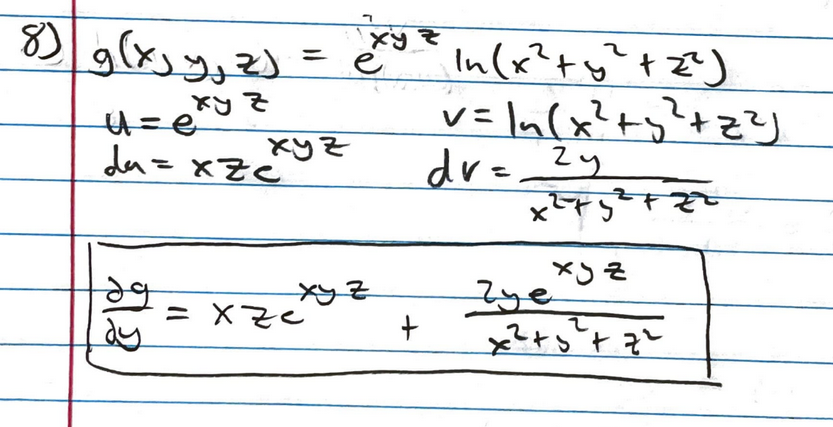 8) g(x, y, z) = e^{xyz} ln(x² + y² + z²)
u = e^{xyz} v = ln(x² + y² + z²)
du = xze^{xyz} dv = \frac{2y}{x² + y² + z²}
\frac{∂g}{∂y} = xze^{xyz} + \frac{2ye^{xyz}}{x² + y² + z²}